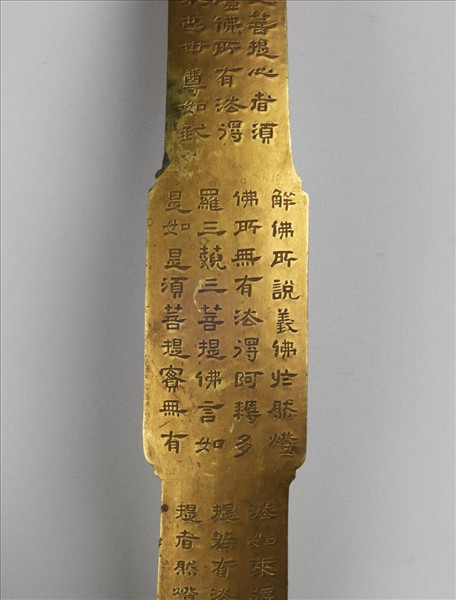 菩提心者須
佛所有法得
不也世尊如我
解佛所說義佛於然燈
佛所無有法得阿耨多
羅三藐三菩提佛言如
是如是須菩提實無有
法如來得
提若有法
提者然燈